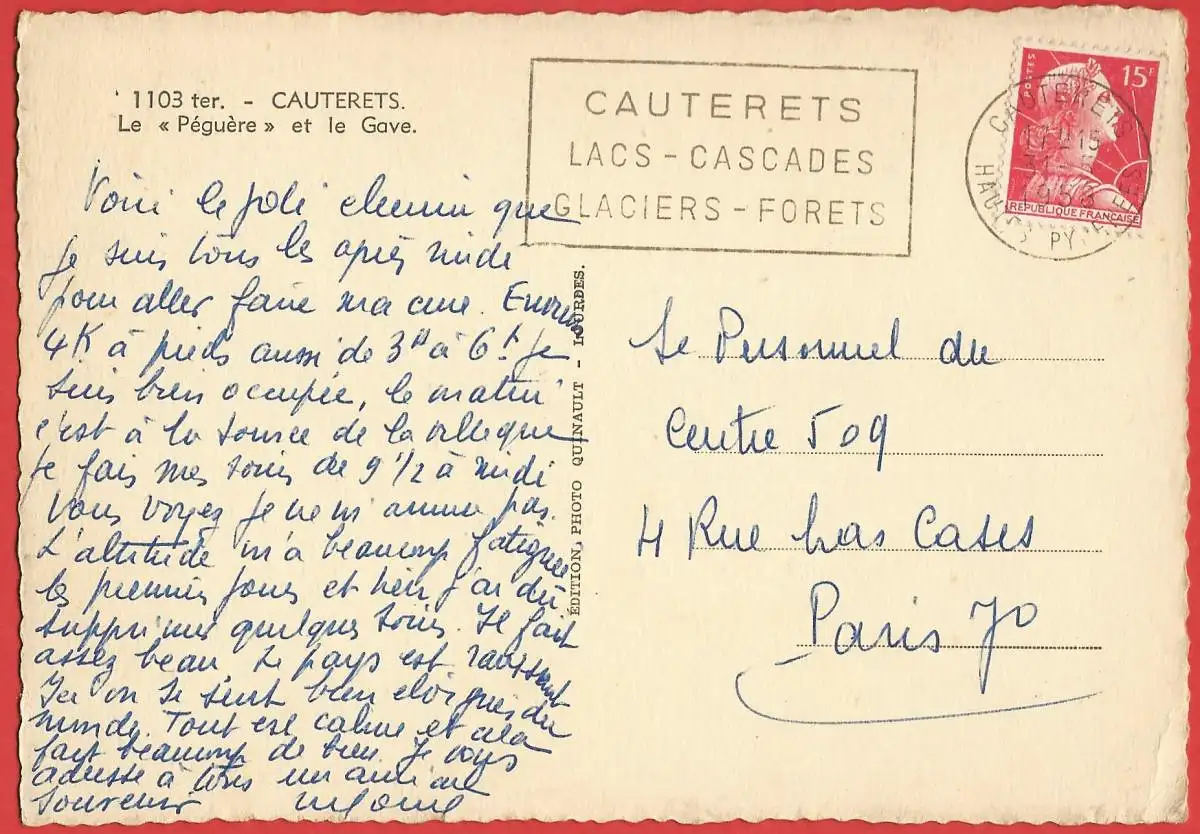 1103 ter. - CAUTERETS.
Le « Péguère » et le Gave.
CAUTERETS
LACS - CASCADES
GLACIERS - FORETS
POSTES
15F
REPUBLIQUE FRANÇAISE
CAUTERETS
17 - 15
31 -
HAUTES PYRENEES
Voici le joli chemin que
je suis tous les après midi
pour aller faire ma cure. Environ
4K à pieds aussi de 3h à 6h je
suis bien occupée, le matin
c'est à la source de la ville que
je fais mes soins de 9 1/2 à midi
Vous voyez je ne m'amuse pas.
L'altitude m'a beaucoup fatiguée
les premiers jours et hier j'ai dû
supprimer quelques soins. Il fait
assez beau, Le pays est ravissant
Ici on se sent bien éloignés du
monde. Tout est calme et cela
fait beaucoup de bien. Je vous
adresse à tous un amical
souvenir
ÉDITION, PHOTO QUINAULT - LOURDES.
Le Personnel du
Centre 509
4 Rue Las Cases
Paris 7o